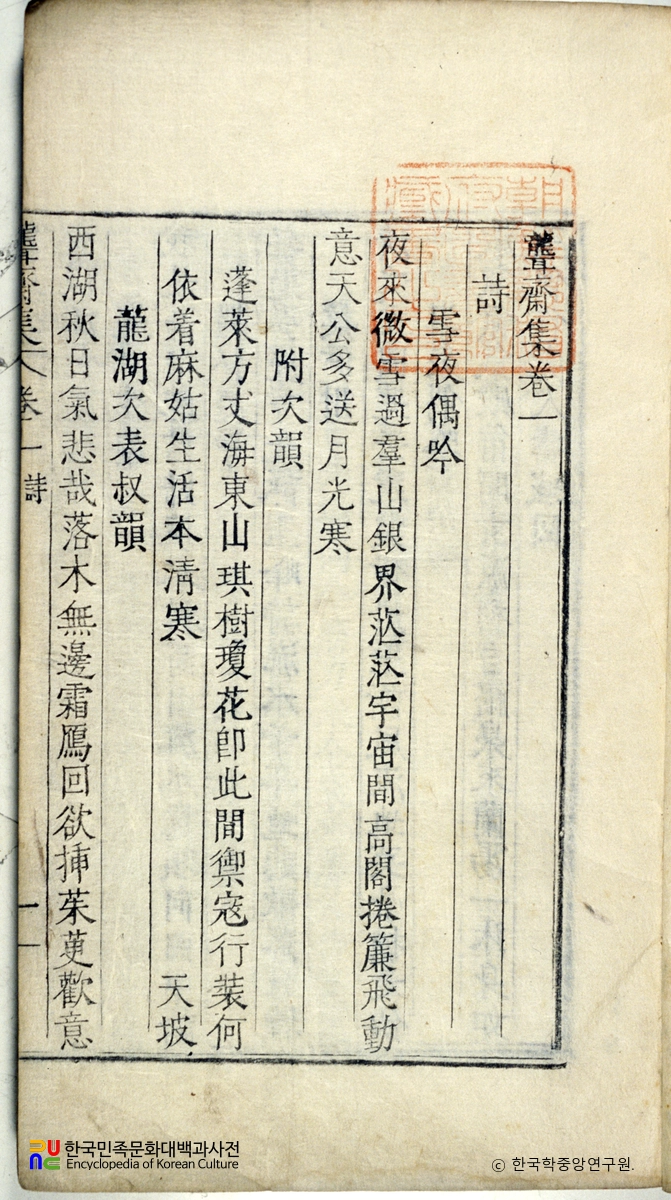 聾齋集卷一
詩
雪夜偶吟
夜來微雪過羣山銀界茫茫宇宙間高閣捲簾飛動
意天公多送月光寒
附次韻
蓬萊方丈海東山琪樹瓊花卽此間禦寇行裝何
依着麻姑生活本淸寒 天坡
龍湖次表叔韻
西湖秋日氣悲哉落木無邊霜鴈回欲揷茱萸歡意
聾齋集 卷一 詩 一
한국민족문화대백과사전
Encyclopedia of Korean Culture
ⓒ 한국학중앙연구원.